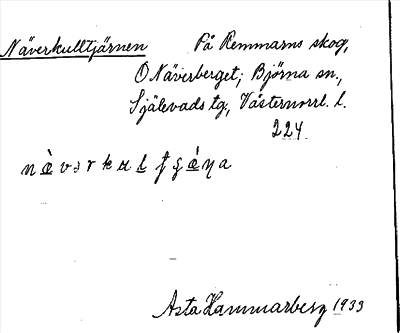 Näverkulltjärnen På Remmarns skog,
O Näverberget; Björna sn.,
Själevads tg., Västernorrl. l.
224
Asta Hammarberg 1933